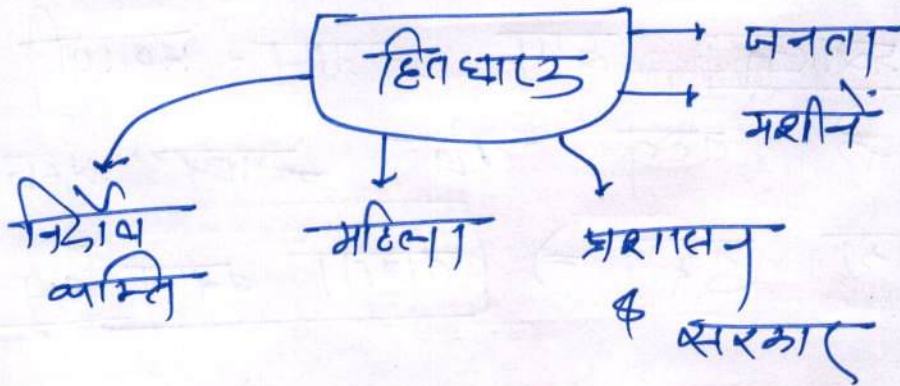 हितधारक
जनता
मशीनें
निर्दोष
व्यक्ति
महिला
प्रशासन
&
सरकार